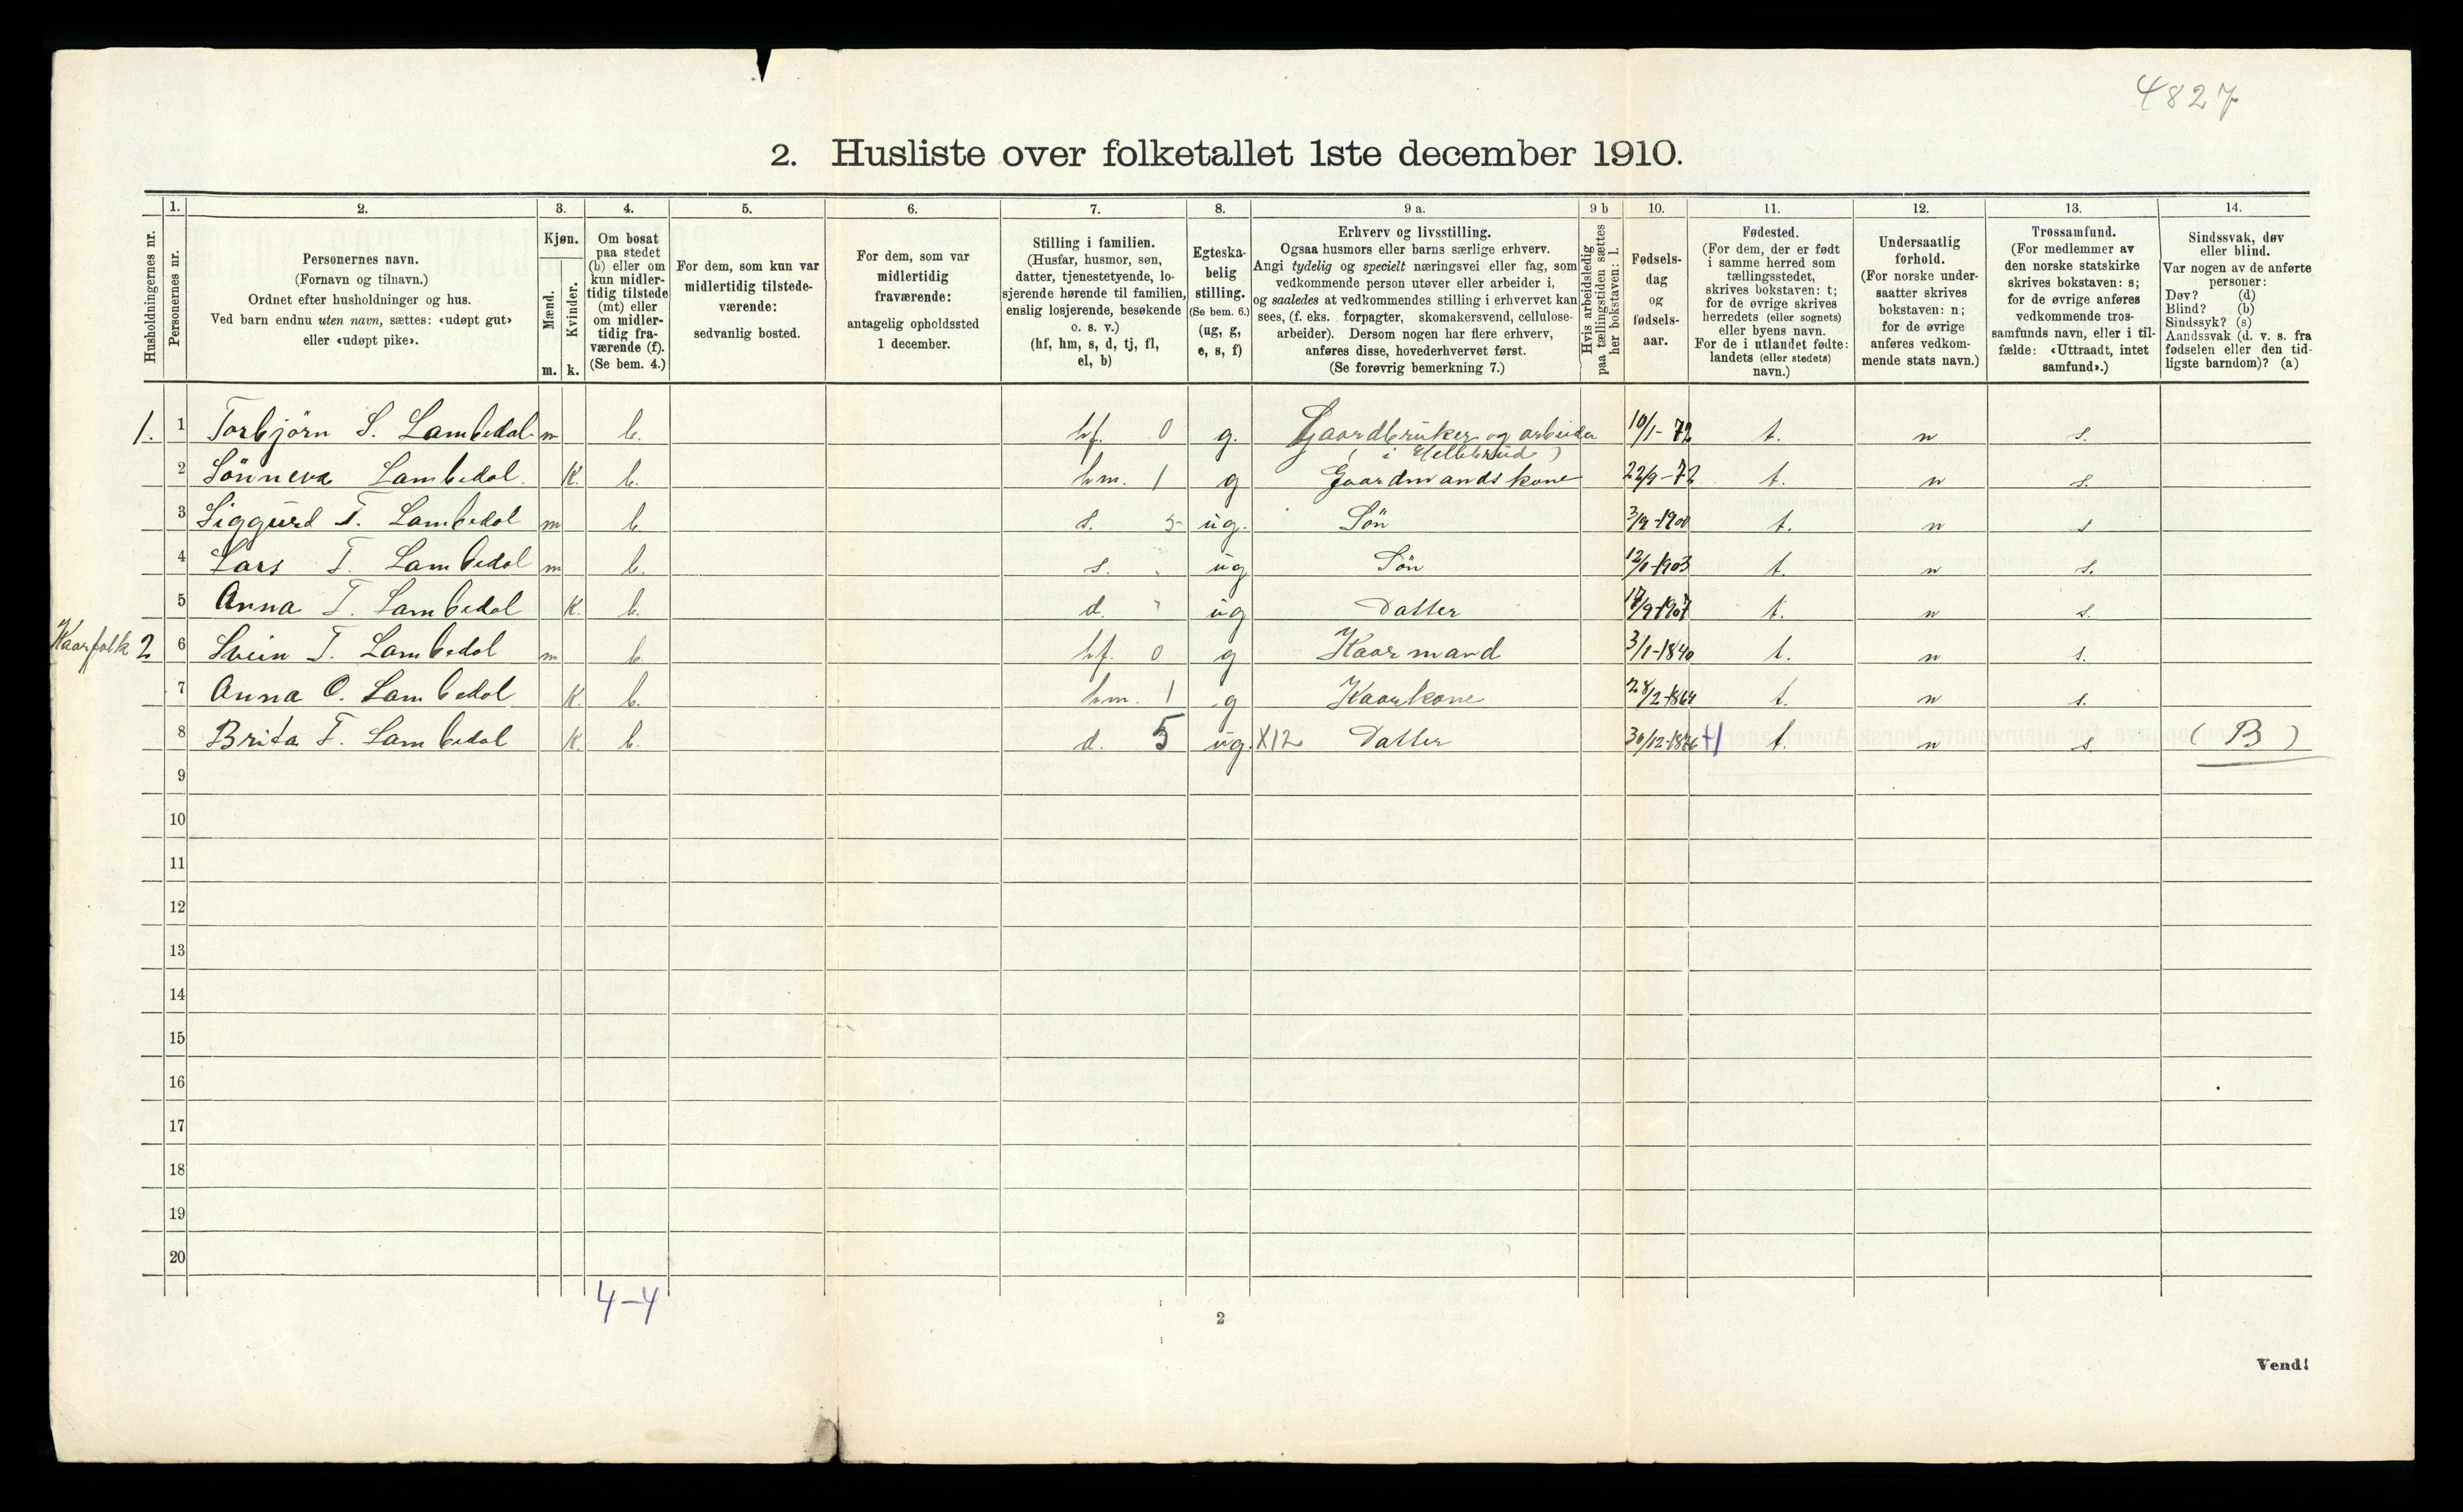 4827
2. Husliste over folketallet 1ste december 1910.
Husholdningernes nr.
1.
Personernes nr.
2.
Personernes navn.
(Fornavn og tilnavn.)
Ordnet efter husholdninger og hus.
Ved barn endnu uten navn, sættes: «udøpt gut»
eller «udøpt pike».
3.
Kjøn.
Mænd.
Kvinder.
m. k.
4.
Om bosat
paa stedet
(b) eller om
kun midler-
tidig tilstede
(mt) eller
om midler-
tidig fra-
værende (f).
(Se bem. 4.)
5.
For dem, som kun var
midlertidig tilstede-
værende:
sedvanlig bosted.
6.
For dem, som var
midlertidig
fraværende:
antagelig opholdssted
1 december.
7.
Stilling i familien.
(Husfar, husmor, søn,
datter, tjenestetyende, lo-
sjerende hørende til familien,
enslig losjerende, besøkende
o. s. v.)
(hf, hm, s, d, tj, fl,
el, b)
8.
Egteska-
belig
stilling.
(Se bem. 6.)
(ug, g,
e, s, f)
9 a.
Erhverv og livsstilling.
Ogsaa husmors eller barns særlige erhverv.
Angi tydelig og specielt næringsvei eller fag, som
vedkommende person utøver eller arbeider i,
og saaledes at vedkommendes stilling i erhvervet kan
sees, (f. eks. forpagter, skomakersvend, cellulose-
arbeider). Dersom nogen har flere erhverv,
anføres disse, hovederhvervet først.
(Se forøvrig bemerkning 7.)
9 b
Hvis arbeidsledig
paa tællingstiden sættes
her bokstaven: l.
10.
Fødsels-
dag
og
fødsels-
aar.
11.
Fødested.
(For dem, der er født
i samme herred som
tællingsstedet,
skrives bokstaven: t;
for de øvrige skrives
herredets (eller sognets)
eller byens navn.
For de i utlandet fødte:
landets (eller stedets)
navn.)
12.
Undersaatlig
forhold.
(For norske under-
saatter skrives
bokstaven: n;
for de øvrige
anføres vedkom-
mende stats navn.)
13.
Trossamfund.
(For medlemmer av
den norske statskirke
skrives bokstaven: s;
for de øvrige anføres
vedkommende tros-
samfunds navn, eller i til-
fælde: «Uttraadt, intet
samfund».)
14.
Sindssvak, døv
eller blind.
Var nogen av de anførte
personer:
Døv? (d)
Blind? (b)
Sindssyk? (s)
Aandssvak (d. v. s. fra
fødselen eller den tid-
ligste barndom)? (a)
1. 1 Torbjörn S. Lambedal m b. hf. 0 g. Gaardbruker og arbeider 10/1-72 t. n s.
( i Hellebrud )
2 Sönneva Lambedal. K. b. hm. 1 g Gaardmandskone 22/9-72 t. n s.
3 Siggurd T. Lambedal m b. s. 5 ug. Sön 3/9-1900 t. n s
4 Lars T. Lambedal m b. s. " ug Sön 12/1-1903 t. n s.
5 Anna T. Lambedal K. b. d. " ug Datter 17/9-1907 t. n s.
Kaarfolk 2 6 Svein T. Lambedal m b. hf. 0 g Kaarmand 3/1-1840 t. n s.
7 Anna O. Lambedal K. b. hm. 1 g Kaarkone 28/2-1864 t. n s.
8 Brita T. Lambedal K. b. d. 5 ug. X12 Datter 30/12-1826 t. n s (B)
9
10
11
12
13
14
15
16
17
18
19
20
4-4
2
Vend!